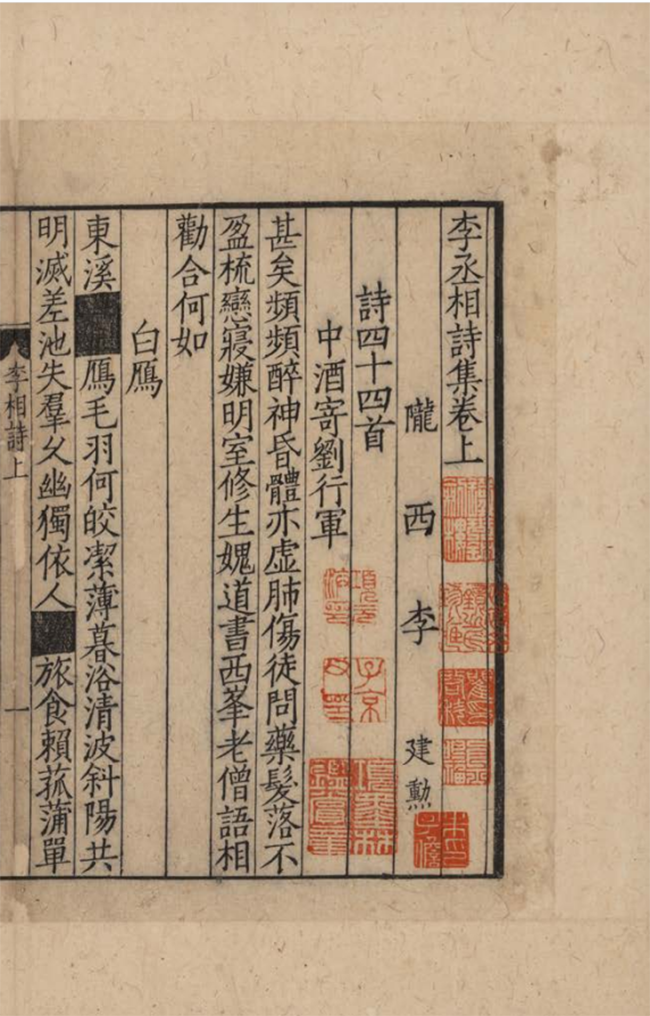 李丞相詩集卷上
隴西李建勲
詩四十四首
中酒寄劉行軍
甚矣頻頻醉神昏體亦虚肺傷徒問藥髮落不
盈梳戀寢嫌明室修生媿道書西峯老僧語相
勸合何如
白鴈
東溪■鴈毛羽何皎潔薄暮浴清波斜陽共
明滅差池失羣久幽獨依人■旅食賴菰蒲單
李相詩上
一
項元汴印
子京父印
項墨林鑑賞章